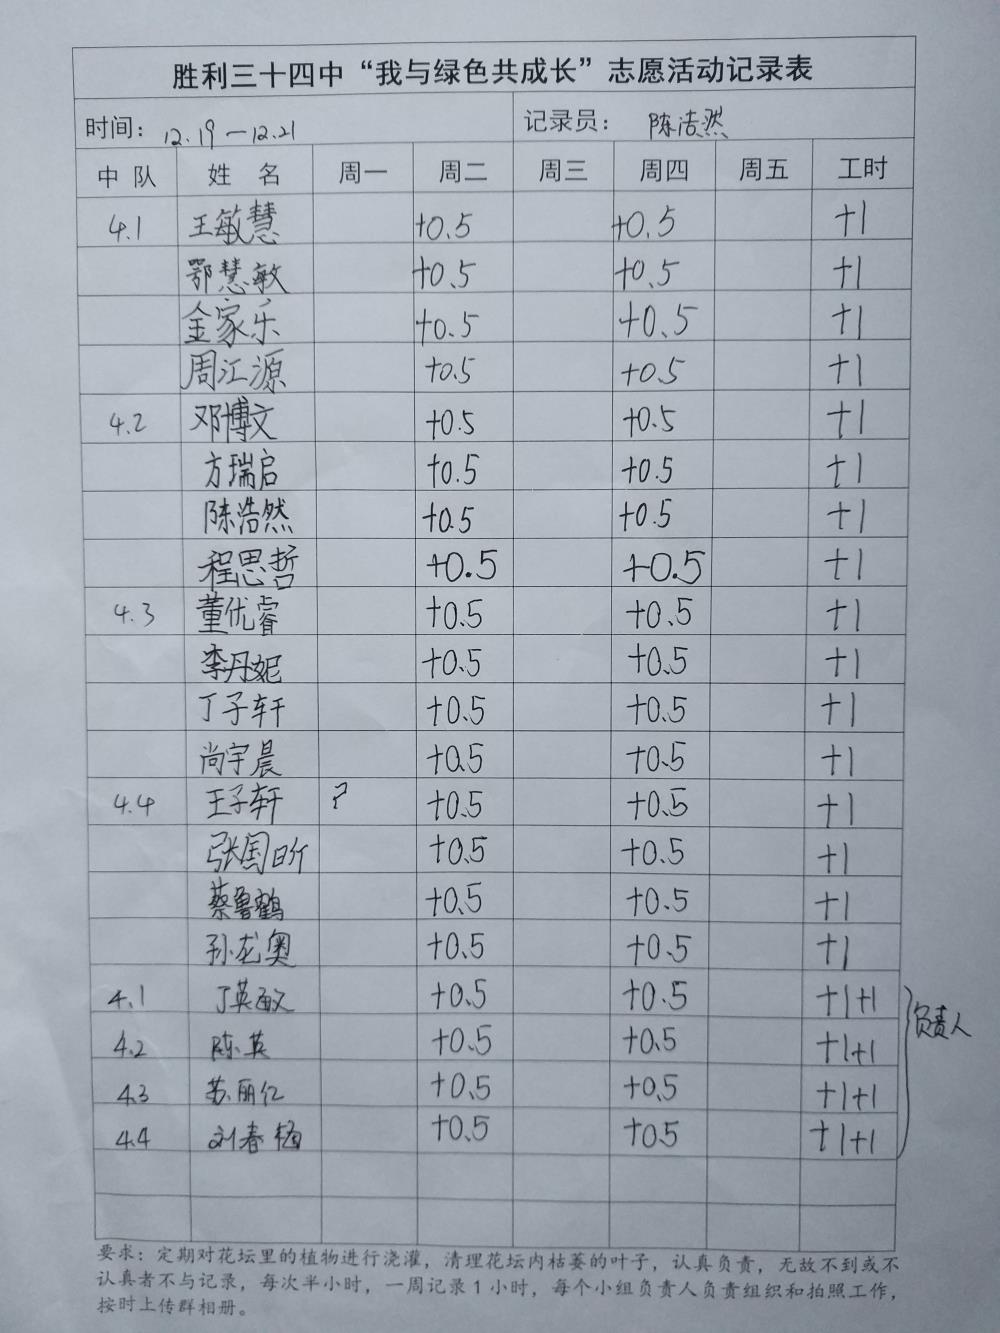 胜利三十四中“我与绿色共成长”志愿活动记录表
时间：12.19－12.21 记录员：陈洁然
中队 姓名 周一 周二 周三 周四 周五 工时
4.1 王敏慧 +0.5 +0.5 +1
鄂慧敏 +0.5 +0.5 +1
金家乐 +0.5 +0.5 +1
周江源 +0.5 +0.5 +1
4.2 邓博文 +0.5 +0.5 +1
方瑞启 +0.5 +0.5 +1
陈浩然 +0.5 +0.5 +1
程思哲 +0.5 +0.5 +1
4.3 董优睿 +0.5 +0.5 +1
李丹妮 +0.5 +0.5 +1
丁子轩 +0.5 +0.5 +1
尚宇晨 +0.5 +0.5 +1
4.4 王子轩 ? +0.5 +0.5 +1
张国昕 +0.5 +0.5 +1
蔡鲁鹤 +0.5 +0.5 +1
孙龙奥 +0.5 +0.5 +1
4.1 丁英敏 +0.5 +0.5 +1+1
4.2 陈英 +0.5 +0.5 +1+1 负责人
4.3 苏丽仁 +0.5 +0.5 +1+1
4.4 刘春梅 +0.5 +0.5 +1+1
要求：定期对花坛里的植物进行浇灌，清理花坛内枯萎的叶子，认真负责，无故不到或不
认真者不与记录，每次半小时，一周记录1小时，每个小组负责人负责组织和拍照工作，
按时上传群相册。